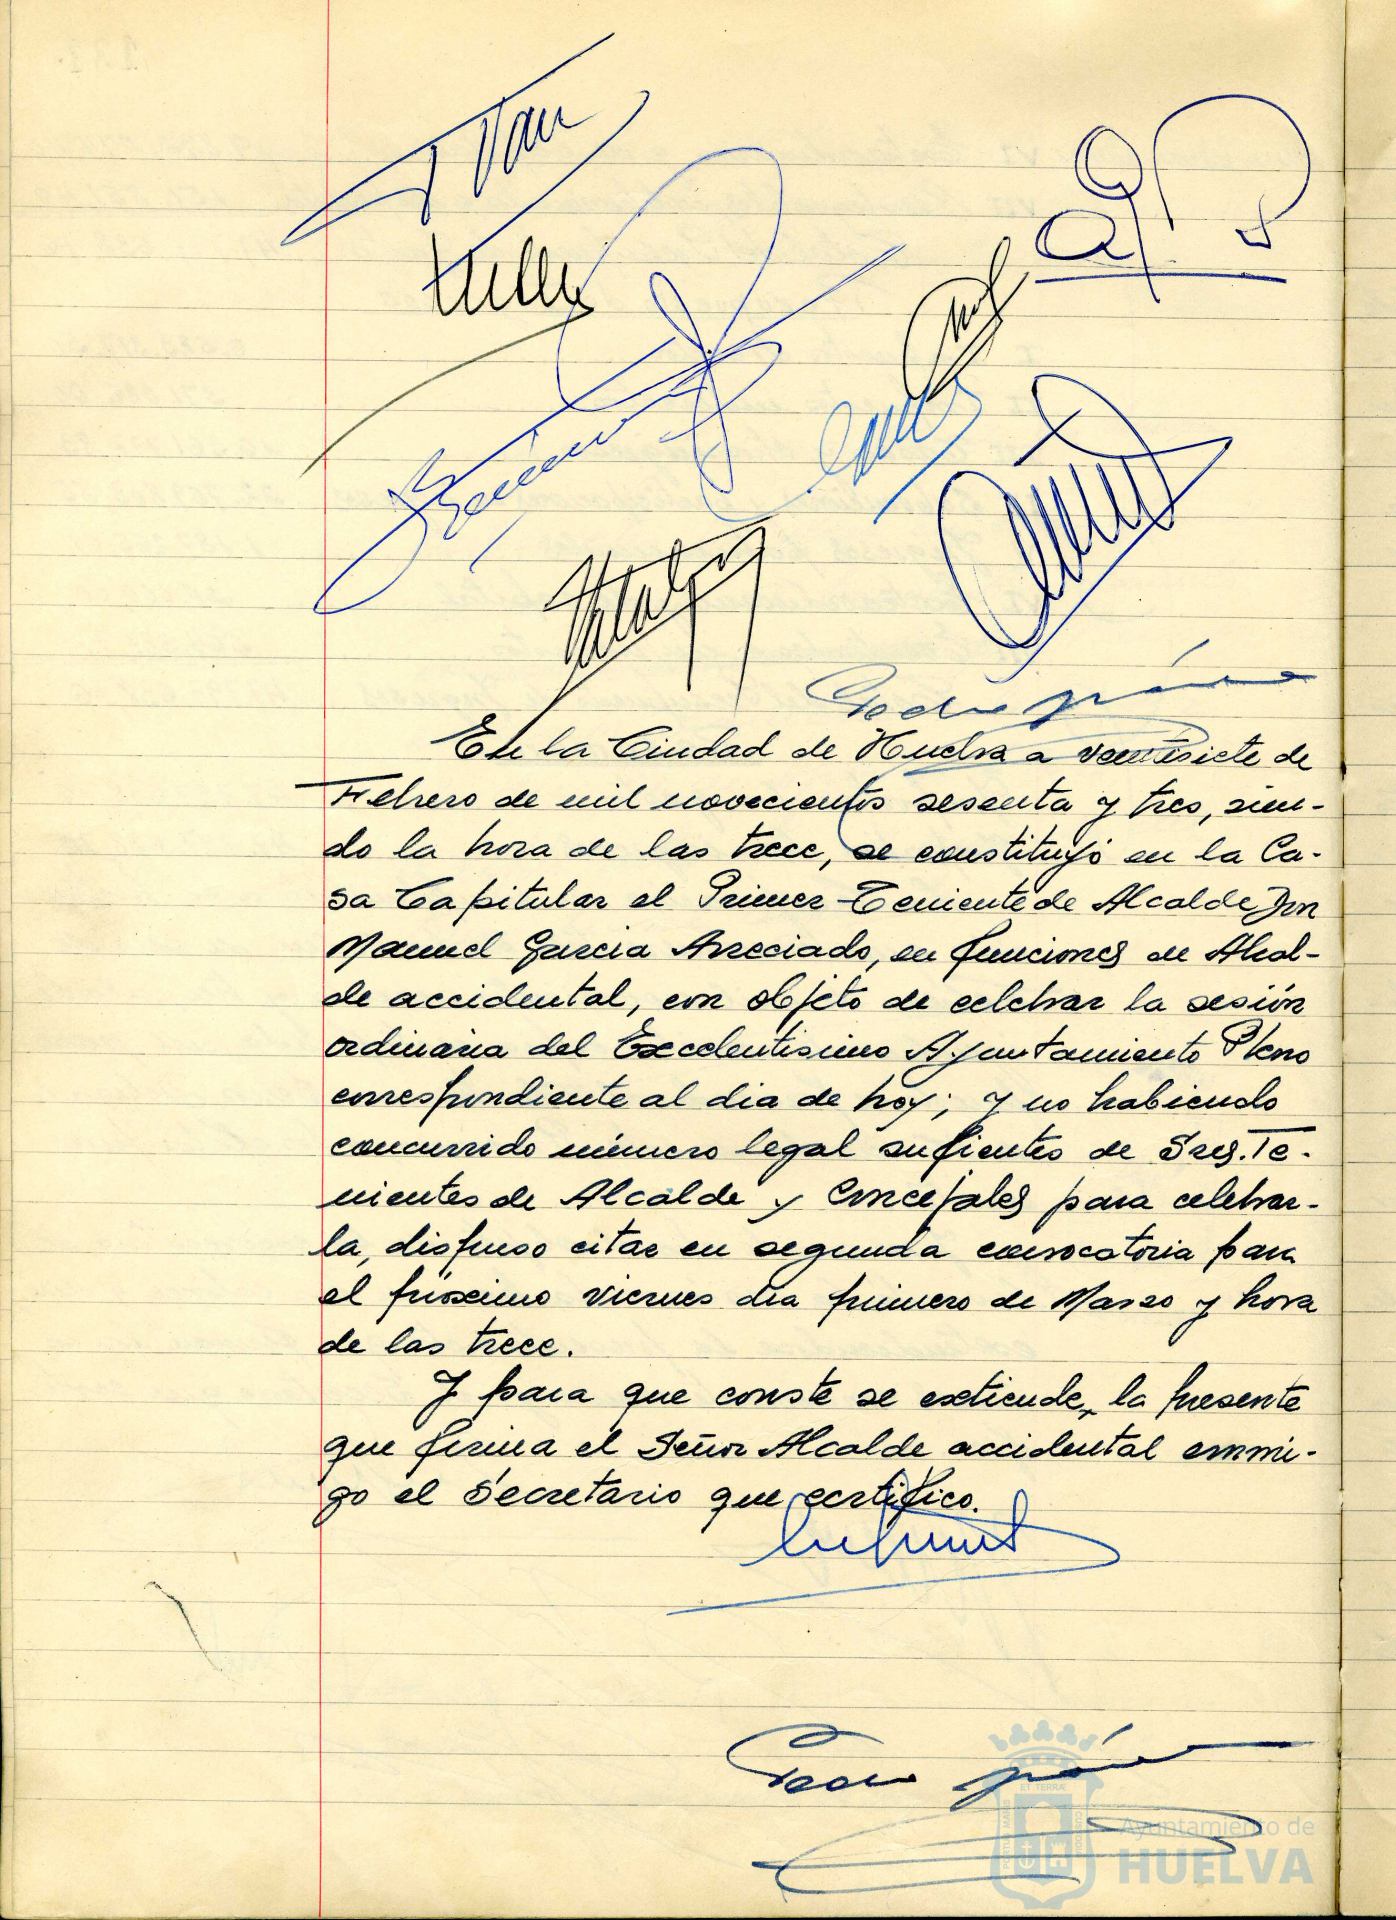 En la Ciudad de Huelva a veintisiete de
Febrero de mil novecientos sesenta y tres, sien-
do la hora de las trece, se constituyó en la Ca-
sa Capitular el Primer Teniente de Alcalde Don
Manuel Garcia Arreciado, en funciones de Alcal-
de accidental, con objeto de celebrar la sesión
ordinaria del Excelentisimo Ayuntamiento Pleno
correspondiente al dia de hoy; y no habiendo
concurrido número legal suficientes de Sres. Te-
nientes de Alcalde y Concejales para celebrar-
la, dispuso citar en segunda convocatoria para
el próximo viernes dia primero de Marzo y hora
de las trece.
Y para que conste se extiende, la presente
que firma el Señor Alcalde accidental conmi-
go el Secretario que certifico.
Pedro
Ayuntamiento de
HUELVA